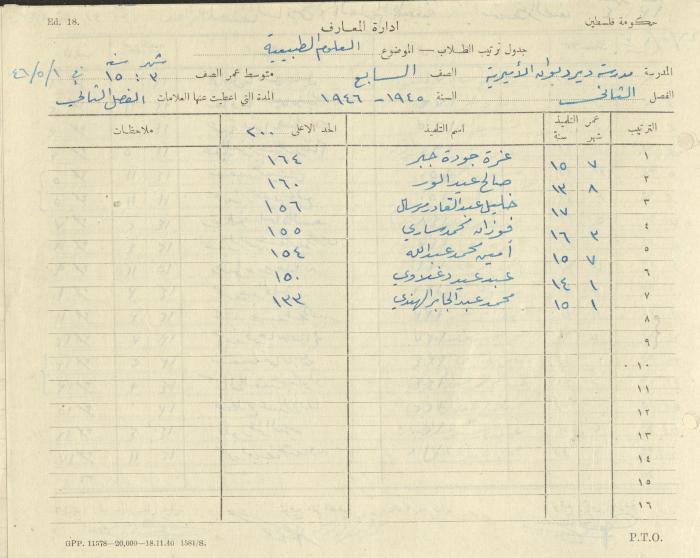 Ed. 18.
حكومة فلسطين
ادارة المعارف
جدول ترتيب الطلاب — الموضوع العلوم الطبيعية
المدرسة مدرسة ديرديوان الأميرية الصف السابع متوسط عمر الصف شهر سنة ٣ : ١٥ في ٤٦/٥/١
الفصل الثاني السنة ١٩٤٥ – ١٩٤٦ المدة التي اعطيت عنها العلامات الفصل الثاني
الترتيب عمر التلميذ شهر سنة اسم التلميذ الحد الاعلى ٢٠٠ ملاحظات
١ ٧ ١٥ عزة جودة جبر ١٦٤
٢ ٨ ١٣ صالح عبد ١٦٠
٣ ١٧ خليل عبد القادر مرسال ١٥٦
٤ ٣ ١٦ فوزان محمد ساري ١٥٥
٥ ٧ ١٥ أمين محمد عبدالله ١٥٤
٦ ١ ١٤ عبد ١٥٠
٧ ١ ١٥ محمد عبد الجابر الهندي ١٣٣
٨
٩
١٠
١١
١٢
١٣
١٤
١٥
١٦
GPP. 11578—20,000—18.11.40 1581/S.
P.T.O.